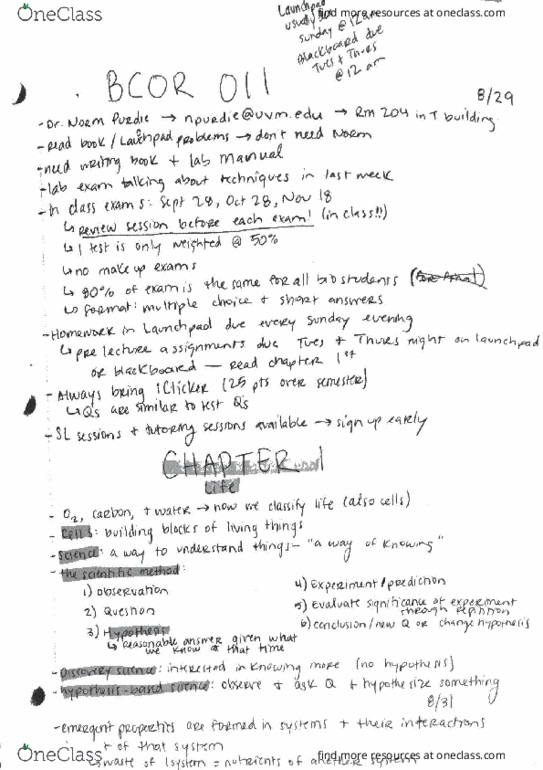 OneClass
find more resources at oneclass.com
Launchpad
usually
Sunday @ 12 am
Blackboard due
Tues + Thurs
@ 12 am
BCOR 011
8/29
- Dr. Norm Purdie → npurdie@uvm.edu → Rm 204 in T building
- Read book / Launchpad problems → don't need Norm
- need writing book + lab manual
- lab exam talking about techniques in last week
- In class exams: Sept 28, Oct 28, Nov 18
↳ review session before each exam! (in class!!)
↳ 1 test is only weighted @ 50%
↳ no make up exams
↳ 80% of exam is the same for all bio students
↳ format: multiple choice + short answers
- Homework in Launchpad due every Sunday evening
↳ pre lecture assignments due Tues + Thurs night on launchpad
or blackboard — read chapter 1st
- Always bring iClicker (25 pts over semester)
↳ Qs are similar to test Qs
- SL sessions + tutoring sessions available → sign up early
CHAPTER 1
Life
- O2, carbon, + water → now we classify life (also cells)
- Cells: building blocks of living things
- Science: a way to understand things - "a way of knowing"
- the scientific method:
1) observation
2) Question
3) Hypothesis
↳ reasonable answer given what
we know @ that time
4) Experiment / prediction
5) evaluate significance of experiment
through repitition
6) conclusion / new Q or change hypothesis
- Discovery science: interested in knowing more (no hypothesis)
- hypothesis-based science: observe + ask Q + hypothesize something
8/31
- emergent properties are formed in systems + their interactions
of that system
waste of 1 system = nutrients of another system
OneClass
find more resources at oneclass.com